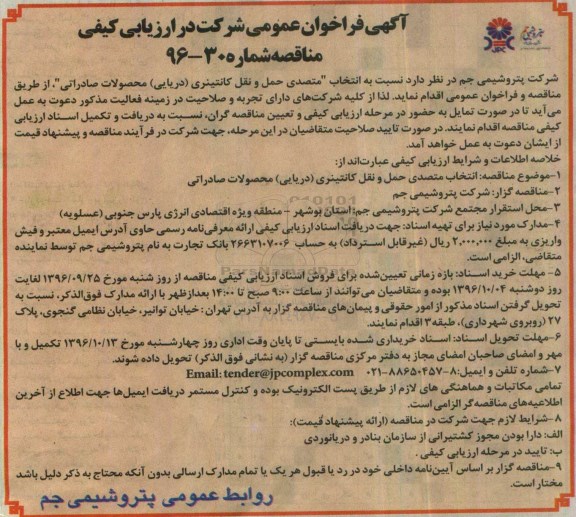 آگهی فراخوان عمومی شرکت در ارزیابی کیفی
مناقصه شماره ۳۰-۹۶
شرکت پتروشیمی جم در نظر دارد نسبت به انتخاب "متصدی حمل و نقل کانتینری (دریایی) محصولات صادراتی"، از طریق
مناقصه و فراخوان عمومی اقدام نماید. لذا از کلیه شرکت‌های دارای تجربه و صلاحیت در زمینه فعالیت مذکور دعوت به عمل
می‌آید تا در صورت تمایل به حضور در مرحله ارزیابی کیفی و تعیین مناقصه گران، نسبت به دریافت و تکمیل اسناد ارزیابی
کیفی مناقصه اقدام نمایند. در صورت تایید صلاحیت متقاضیان در این مرحله، جهت شرکت در فرآیند مناقصه و پیشنهاد قیمت
از ایشان دعوت به عمل خواهد آمد.
خلاصه اطلاعات و شرایط ارزیابی کیفی عبارت‌اند از:
۱-موضوع مناقصه: انتخاب متصدی حمل و نقل کانتینری (دریایی) محصولات صادراتی
۲-مناقصه گزار: شرکت پتروشیمی جم
۳-محل استقرار مجتمع شرکت پتروشیمی جم: استان بوشهر - منطقه ویژه اقتصادی انرژی پارس جنوبی (عسلویه)
۴-مدارک مورد نیاز برای تهیه اسناد: جهت دریافت اسناد ارزیابی کیفی ارائه معرفی‌نامه رسمی حاوی آدرس ایمیل معتبر و فیش
واریزی به مبلغ ۲,۰۰۰,۰۰۰ ریال (غیرقابل استرداد) به حساب ۲۶۶۳۱۰۷۰۰۶ بانک تجارت به نام پتروشیمی جم توسط نماینده
متقاضی، الزامی است.
۵- مهلت خرید اسناد: بازه زمانی تعیین‌شده برای فروش اسناد ارزیابی کیفی مناقصه از روز شنبه مورخ ۱۳۹۶/۰۹/۲۵ لغایت
روز دوشنبه ۱۳۹۶/۱۰/۰۴ بوده و متقاضیان می‌توانند از ساعت ۹:۰۰ صبح تا ۱۴:۰۰ بعدازظهر با ارائه مدارک فوق‌الذکر، نسبت به
تحویل گرفتن اسناد مذکور از امور حقوقی و پیمان‌های مناقصه گزار به آدرس تهران : خیابان توانیر، خیابان نظامی گنجوی، پلاک
۲۷ (روبروی شهرداری)، طبقه۳ اقدام نمایند.
۶-مهلت تحویل اسناد: اسناد خریداری شده بایستی تا پایان وقت اداری روز چهارشنبه مورخ ۱۳۹۶/۱۰/۱۳ تکمیل و با
مهر و امضای صاحبان امضای مجاز به دفتر مرکزی مناقصه گزار (به نشانی فوق الذکر) تحویل داده شوند.
۷-شماره تلفن و ایمیل: ۸-۸۸۶۵۰۴۵۷-۰۲۱ Email: tender@jpcomplex.com
تمامی مکاتبات و هماهنگی های لازم از طریق پست الکترونیک بوده و کنترل مستمر دریافت ایمیل‌ها جهت اطلاع از آخرین
اطلاعیه‌های مناقصه‌گر الزامی است.
۸-شرایط لازم جهت شرکت در مناقصه (ارائه پیشنهاد قیمت):
الف: دارا بودن مجوز کشتیرانی از سازمان بنادر و دریانوردی
ب: تایید در مرحله ارزیابی کیفی .
۹-مناقصه گزار بر اساس آیین‌نامه داخلی خود در رد یا قبول هر یک یا تمام مدارک ارسالی بدون آنکه محتاج به ذکر دلیل باشد
مختار است.
روابط عمومی پتروشیمی جم